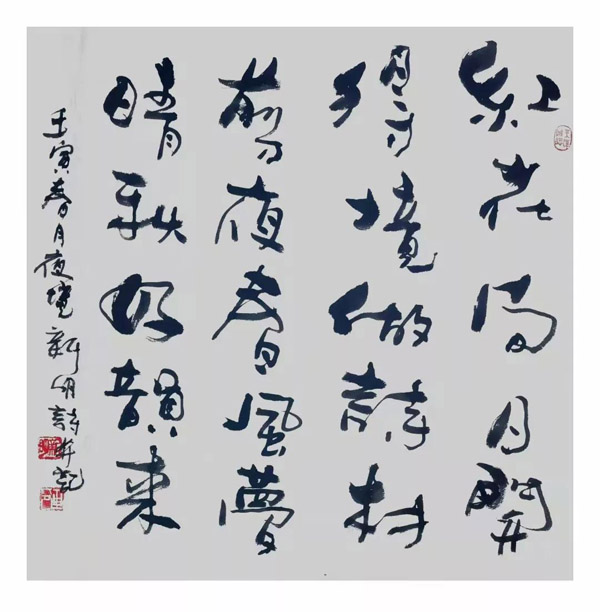 紅花向月開
得境做詩材
夜春風夢
晴秋好韻來
壬寅春月夜境新明詩并記